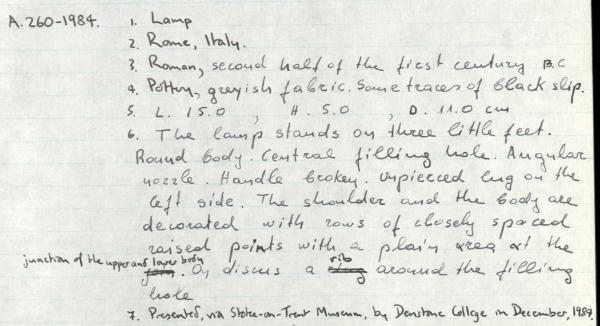 A.260-1984. 1. Lamp
2. Rome, Italy.
3. Roman, second half of the first century B.C
4. Pottery, greyish fabric. Some traces of black slip.
5. L. 15.0 , H. 5.0 , D. 11.0 cm
6. The lamp stands on three little feet.
Round body. Central filling hole. Angular
nozzle. Handle broken. Unpierced lug on the
left side. The shoulder and the body are
decorated with rows of closely spaced
raised points with a plain area at the
junction of the upper and lower body. On discus a rib around the filling
hole
7. Presented, via Stoke-on-Trent Museum, by Denstone College in December, 1984.